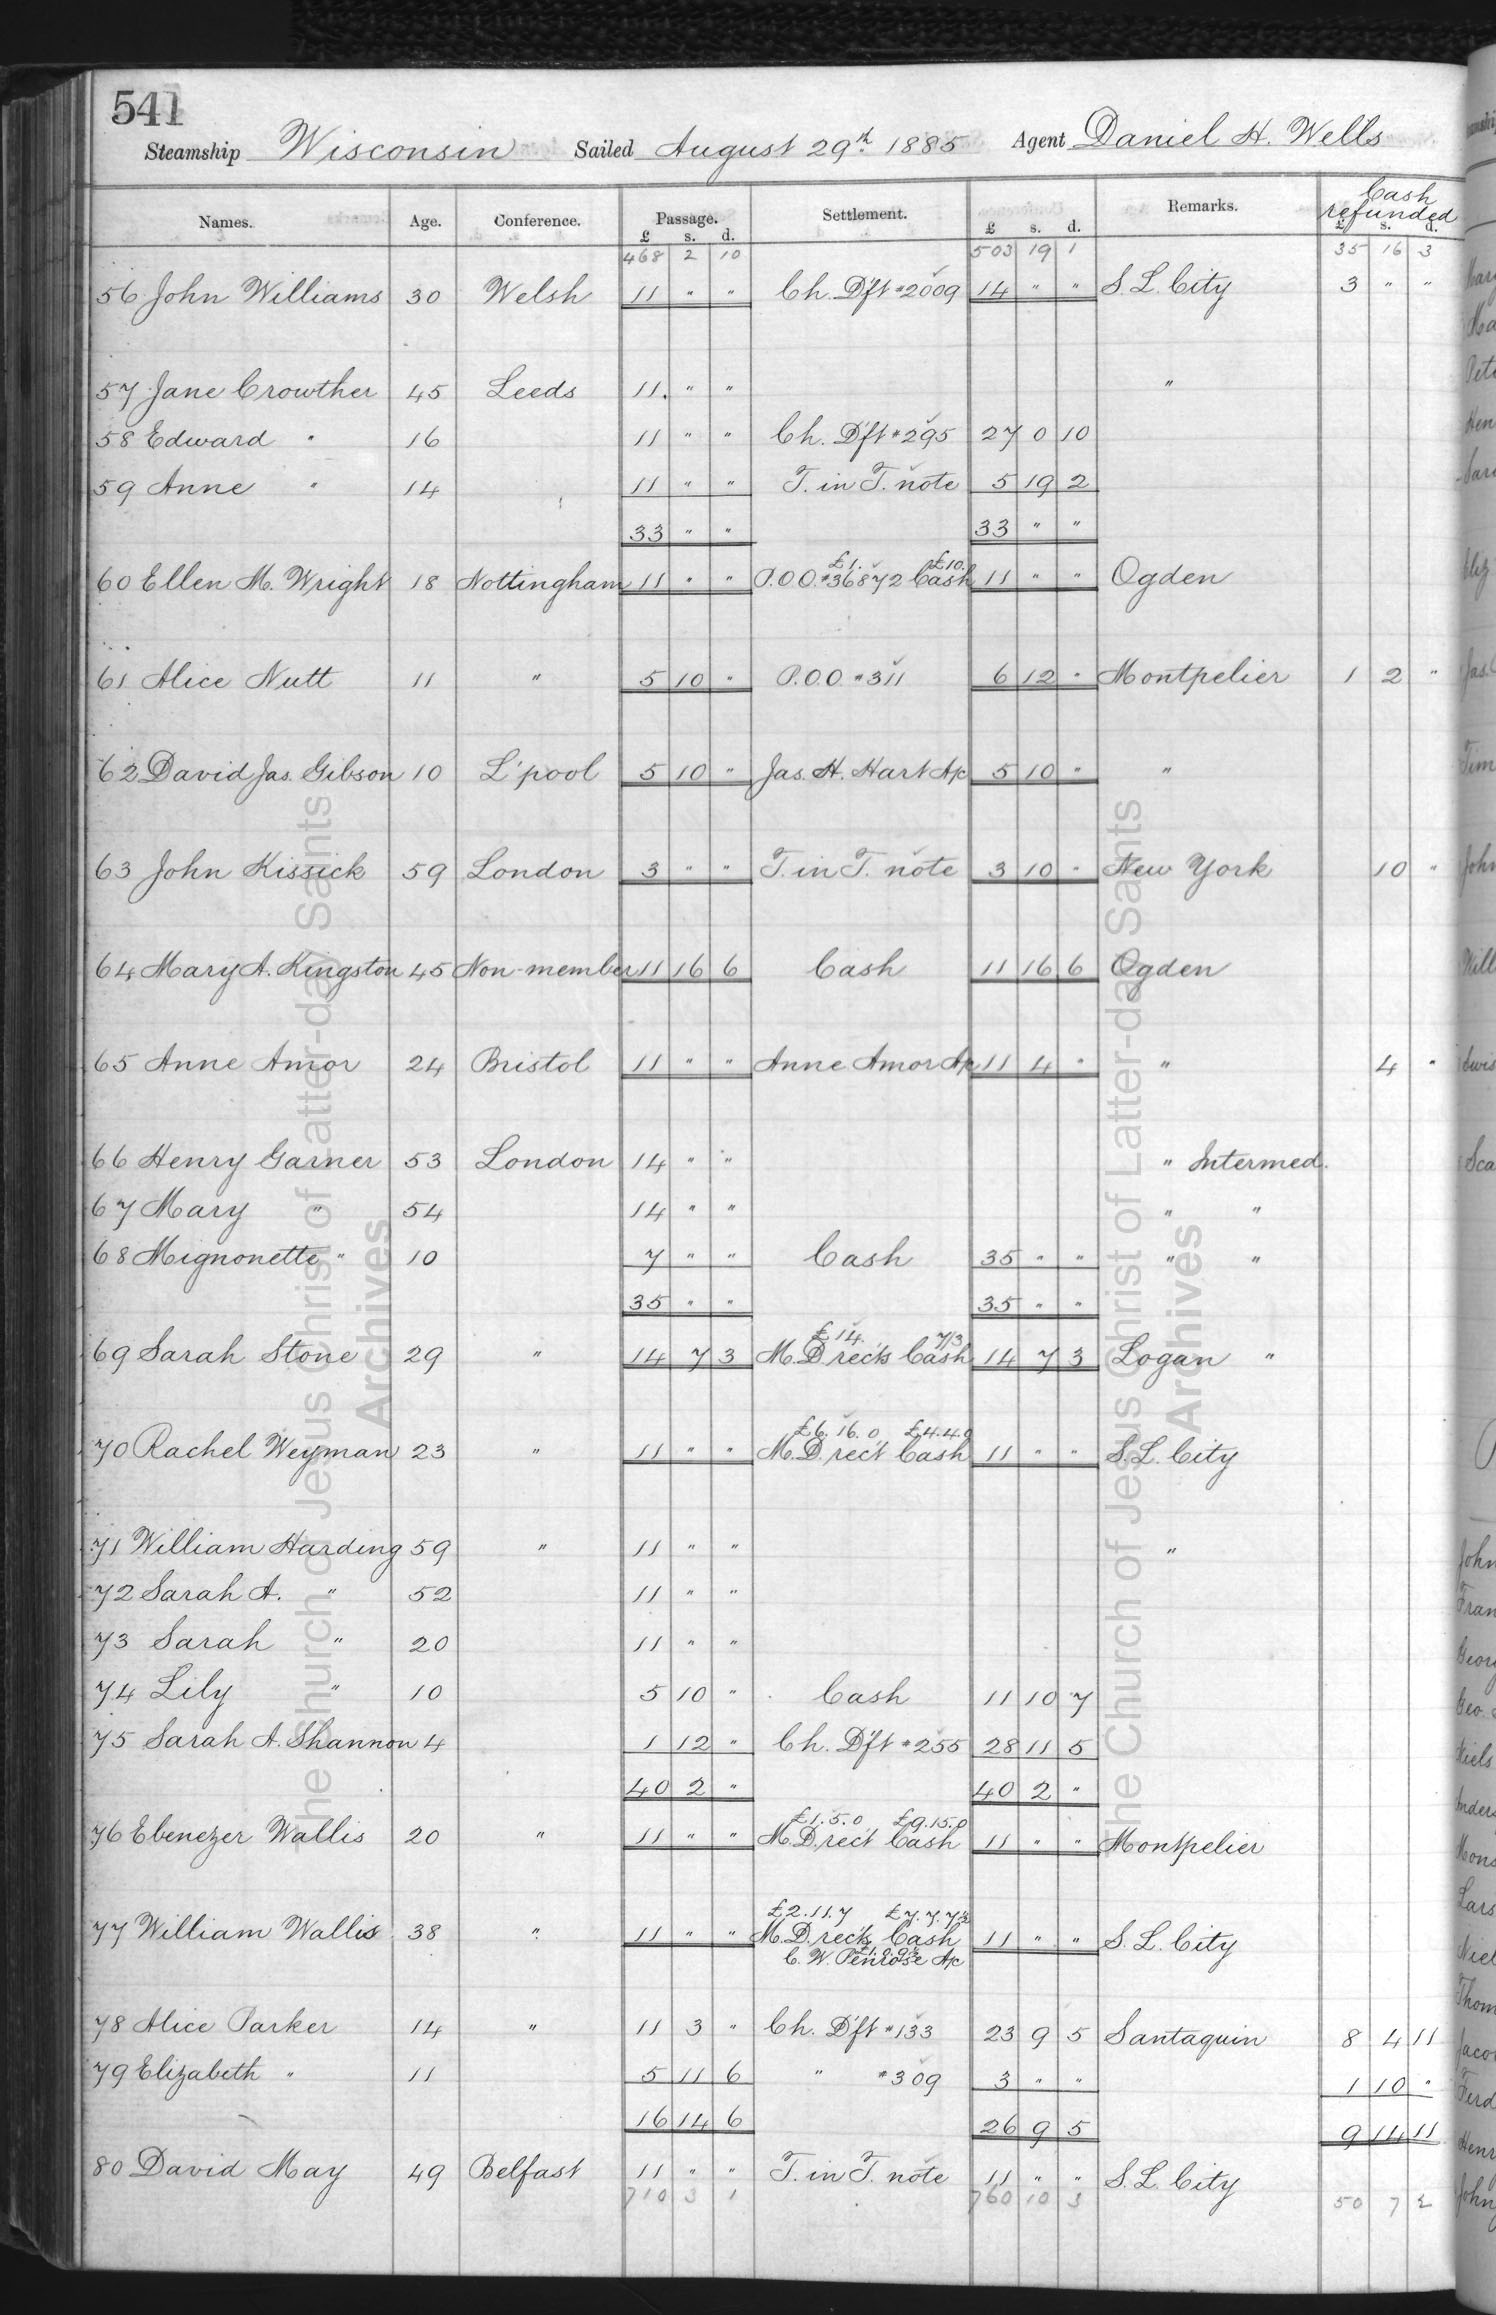 541
Steamship Wisconsin Sailed August 29th 1885 Agent Daniel H. Wells
Names. Age. Conference. Passage. Settlement. Remarks. Cash refunded
£ s. d. £ s. d. £ s. d.
468 2 10 503 19 1 35 16 3
56 John Williams 30 Welsh 11 " " Ch. D'ft #2009 14 " " S. L. City 3 " "
57 Jane Crowther 45 Leeds 11. " " "
58 Edward " 16 11 " " Ch. D'ft #295 27 0 10
59 Anne " 14 11 " " T. in T. note 5 19 2
33 " " 33 " "
£1. £10.
60 Ellen M. Wright 18 Nottingham 11 " " P.O.O. #36872 Cash 11 " " Ogden
61 Alice Nutt 11 " 5 10 " P.O.O. #311 6 12 " Montpelier 1 2 "
62 David Jas. Gibson 10 L'pool 5 10 " Jas. H. Hart A/c 5 10 " "
63 John Kissick 59 London 3 " " T. in T. note 3 10 " New York 10 "
64 Mary A. Kingston 45 Non-member 11 16 6 Cash 11 16 6 Ogden
65 Anne Amor 24 Bristol 11 " " Anne Amor A/c 11 4 " " 4 "
66 Henry Garner 53 London 14 " " " Intermed.
67 Mary " 54 14 " " " "
68 Mignonette " 10 7 " " Cash 35 " " " "
35 " " 35 " "
£14. 7/3
69 Sarah Stone 29 " 14 7 3 M.D. rec'ts Cash 14 7 3 Logan "
£6.16.0 £4.4.0
70 Rachel Weyman 23 " 11 " " M.D. rec't Cash 11 " " S. L. City
71 William Harding 59 " 11 " " "
72 Sarah A. " 52 11 " "
73 Sarah " 20 11 " "
74 Lily " 10 5 10 " Cash 11 10 7
75 Sarah A. Shannon 4 1 12 " Ch. D'ft #255 28 11 5
40 2 " 40 2 "
£1.5.0 £9.15.0
76 Ebenezer Wallis 20 " 11 " " M.D. rec't Cash 11 " " Montpelier
£2.11.7 £7.7.7½
77 William Wallis 38 " 11 " " M.D. rec'ts Cash 11 " " S. L. City
C. W. Penrose A/c
78 Alice Parker 14 " 11 3 " Ch. D'ft #133 23 9 5 Santaquin 8 4 11
79 Elizabeth " 11 5 11 6 " #309 3 " " 1 10 "
16 14 6 26 9 5 9 14 11
80 David May 49 Belfast 11 " " T. in T. note 11 " " S. L. City
710 3 1 760 10 3 50 7 2
The Church of Jesus Christ of Latter-day Saints
Archives
The Church of Jesus Christ of Latter-day Saints
Archives